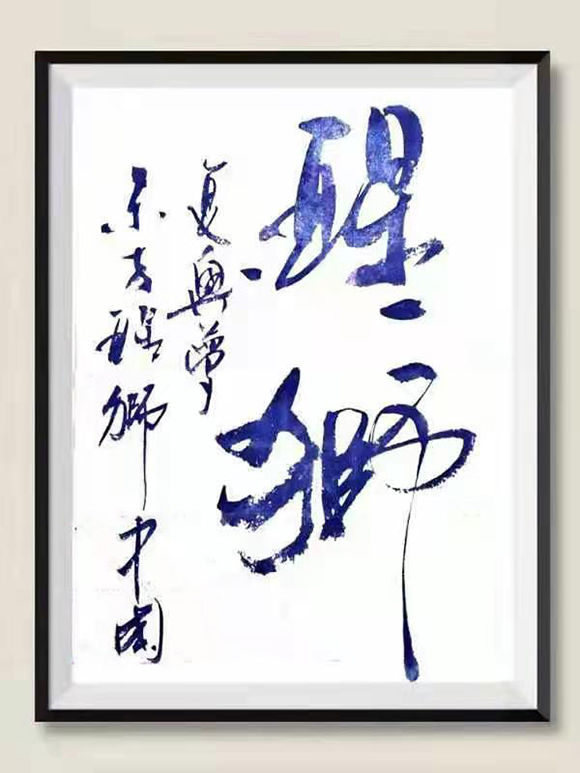 醒獅
复興夢
东方醒獅中國